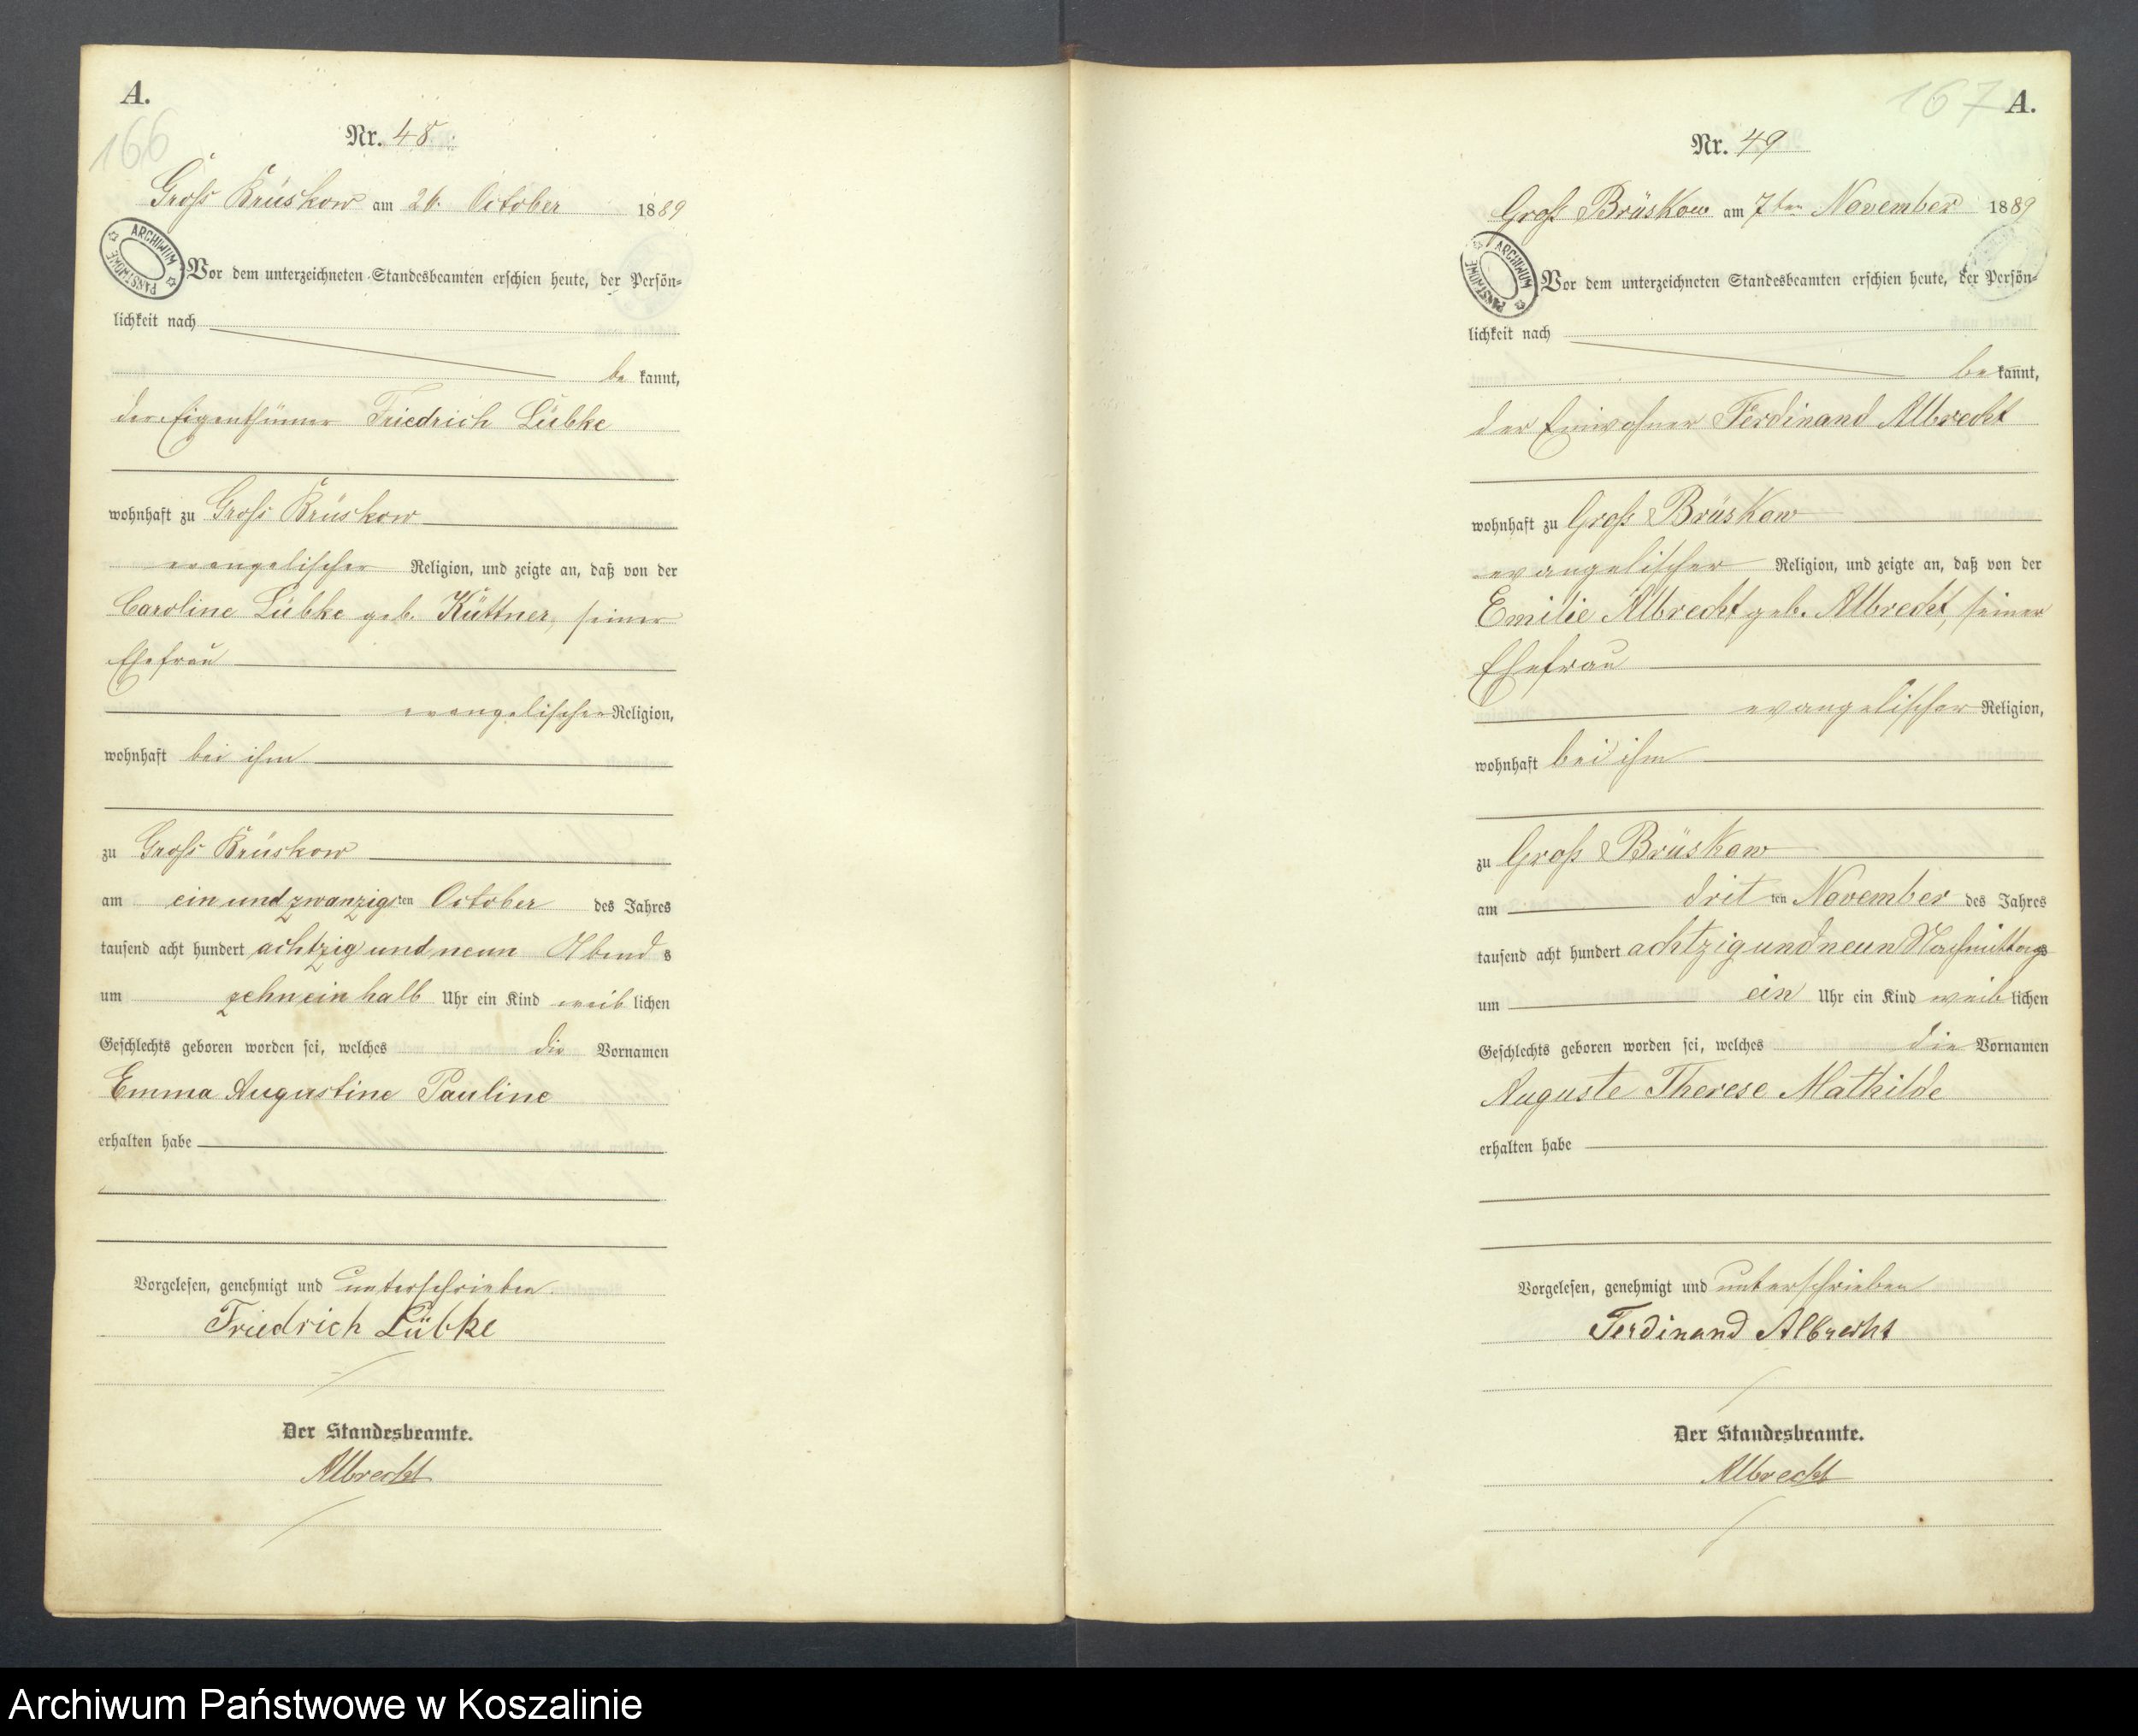 A.
166
Nr. 48.
Groß Brüskow am 26. October 1889
ARCHIWUM PAŃSTWOWE
Vor dem unterzeichneten Standesbeamten erschien heute, der Persön=
lichkeit nach
be kannt,
der Eigenthümer Friedrich Lübke
wohnhaft zu Groß Brüskow
evangelischer Religion, und zeigte an, daß von der
Caroline Lübke geb. Küttner, seiner
Ehefrau
evangelischer Religion,
wohnhaft bei ihm
zu Groß Brüskow
am ein und zwanzigsten October des Jahres
tausend acht hundert achtzig und neun Abends
um zehn ein halb Uhr ein Kind weiblichen
Geschlechts geboren worden sei, welches die Vornamen
Emma Augustine Pauline
erhalten habe
Vorgelesen, genehmigt und unterschrieben.
Friedrich Lübke
Der Standesbeamte.
Albrecht
167 A.
Nr. 49
Groß Brüskow am 7ten November 1889
ARCHIWUM PAŃSTWOWE
Vor dem unterzeichneten Standesbeamten erschien heute, der Persön=
lichkeit nach
be kannt,
der Einwohner Ferdinand Albrecht
wohnhaft zu Groß Brüskow
evangelischer Religion, und zeigte an, daß von der
Emilie Albrecht geb. Albrecht, seiner
Ehefrau
evangelischer Religion,
wohnhaft bei ihm
zu Groß Brüskow
am dritten November des Jahres
tausend acht hundert achtzig und neun Nachmittags
um ein Uhr ein Kind weiblichen
Geschlechts geboren worden sei, welches die Vornamen
Auguste Therese Mathilde
erhalten habe
Vorgelesen, genehmigt und unterschrieben
Ferdinand Albrecht
Der Standesbeamte.
Albrecht
Archiwum Państwowe w Koszalinie